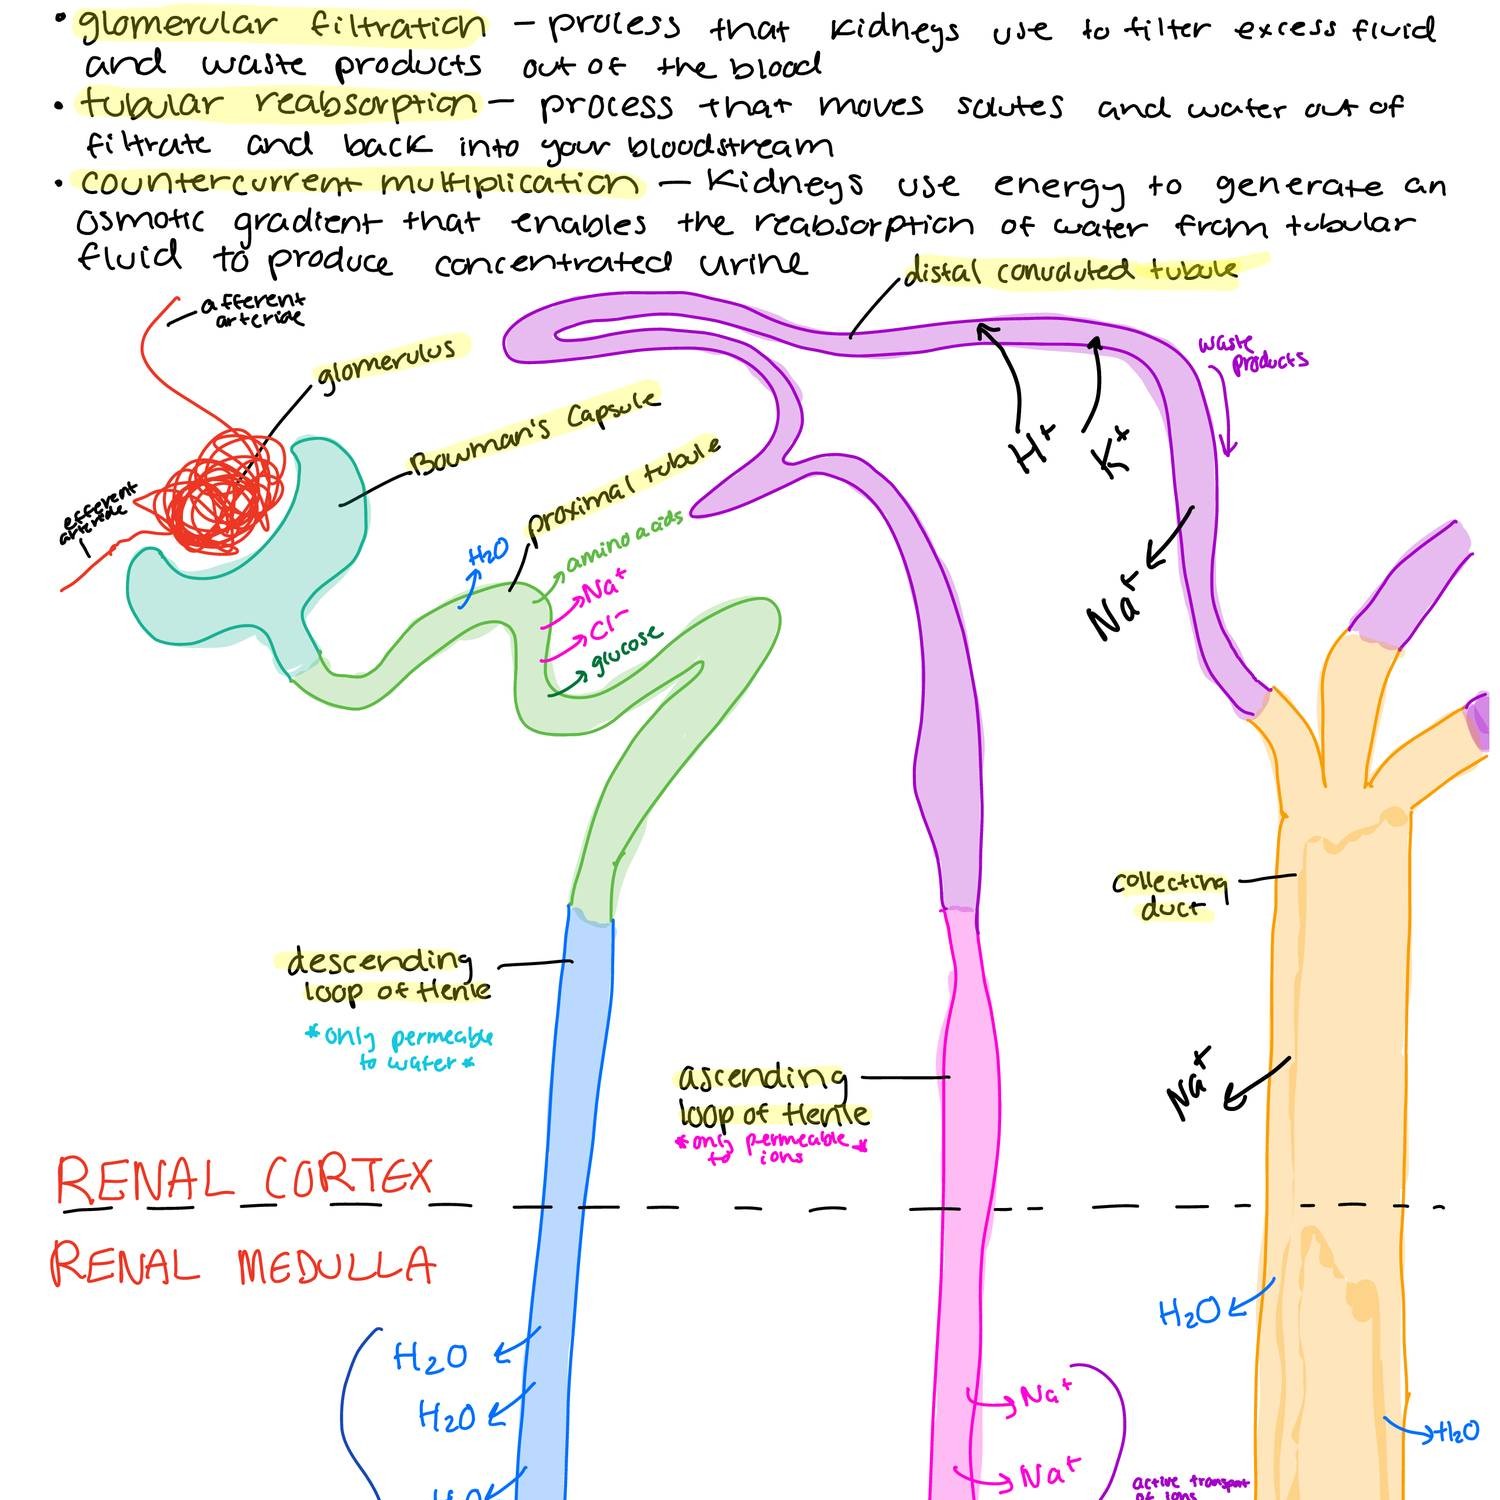 • glomerular filtration – process that kidneys use to filter excess fluid
and waste products out of the blood
• tubular reabsorption – process that moves solutes and water out of
filtrate and back into your bloodstream
• countercurrent multiplication – kidneys use energy to generate an
osmotic gradient that enables the reabsorption of water from tubular
fluid to produce concentrated urine
distal convoluted tubule
afferent
arteriole
glomerulus
waste
products
Bowman's Capsule
proximal tubule
H+
K+
efferent
arteriole
H₂O
amino acids
Na+
Cl-
glucose
Na+
collecting
duct
descending
loop of Henle
*only permeable
to water*
ascending
loop of Henle
*only permeable*
to ions
Na+
RENAL CORTEX
RENAL MEDULLA
H₂O
H₂O
H₂O
Na+
H₂O
Na+
active transport
of ions
H₂O